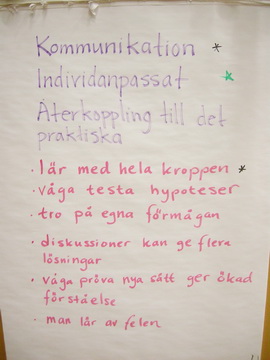 Kommunikation *
Individanpassat *
Återkoppling till det
praktiska
· lär med hela kroppen *
· våga testa hypoteser
· tro på egna förmågan
· diskussioner kan ge flera
lösningar
· våga pröva nya sätt ger ökad
förståelse
· man lär av felen